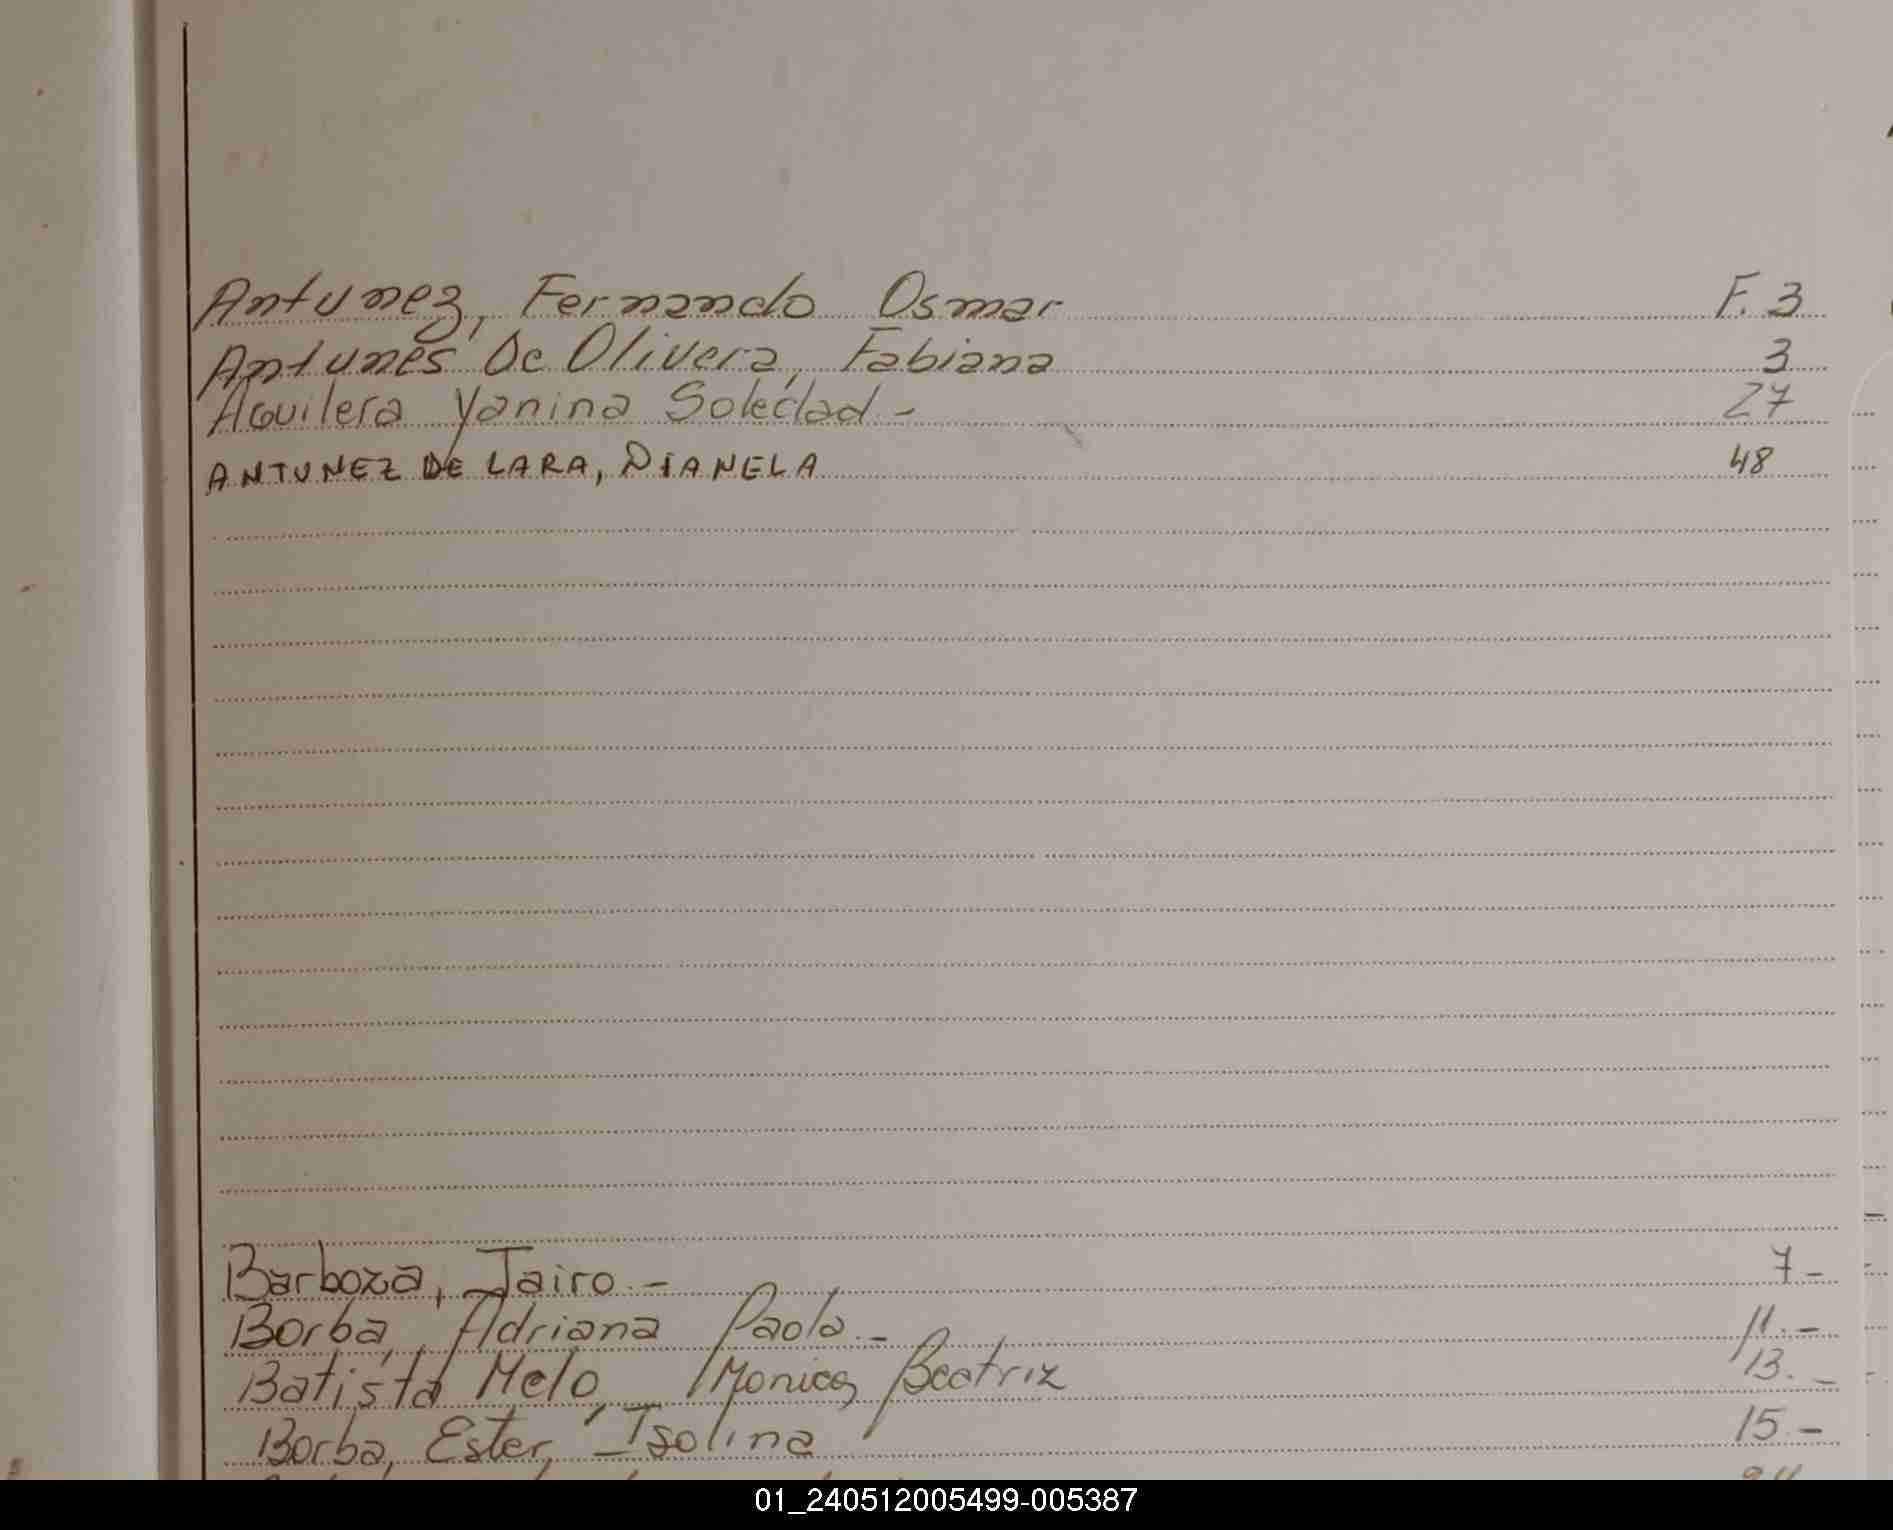 Antunez, Fernando Osmar F. 3
Antunes De Olivera, Fabiana 3
Aguilera Yanina Soledad.- 27
ANTUNEZ DE LARA, DIANELA 48
Barboza, Jairo.- 7-
Borba, Adriana Paola.- 11.-
Batista Melo, Monica Beatriz 13.-
Borba, Ester, Isolina 15.-
01_240512005499-005387